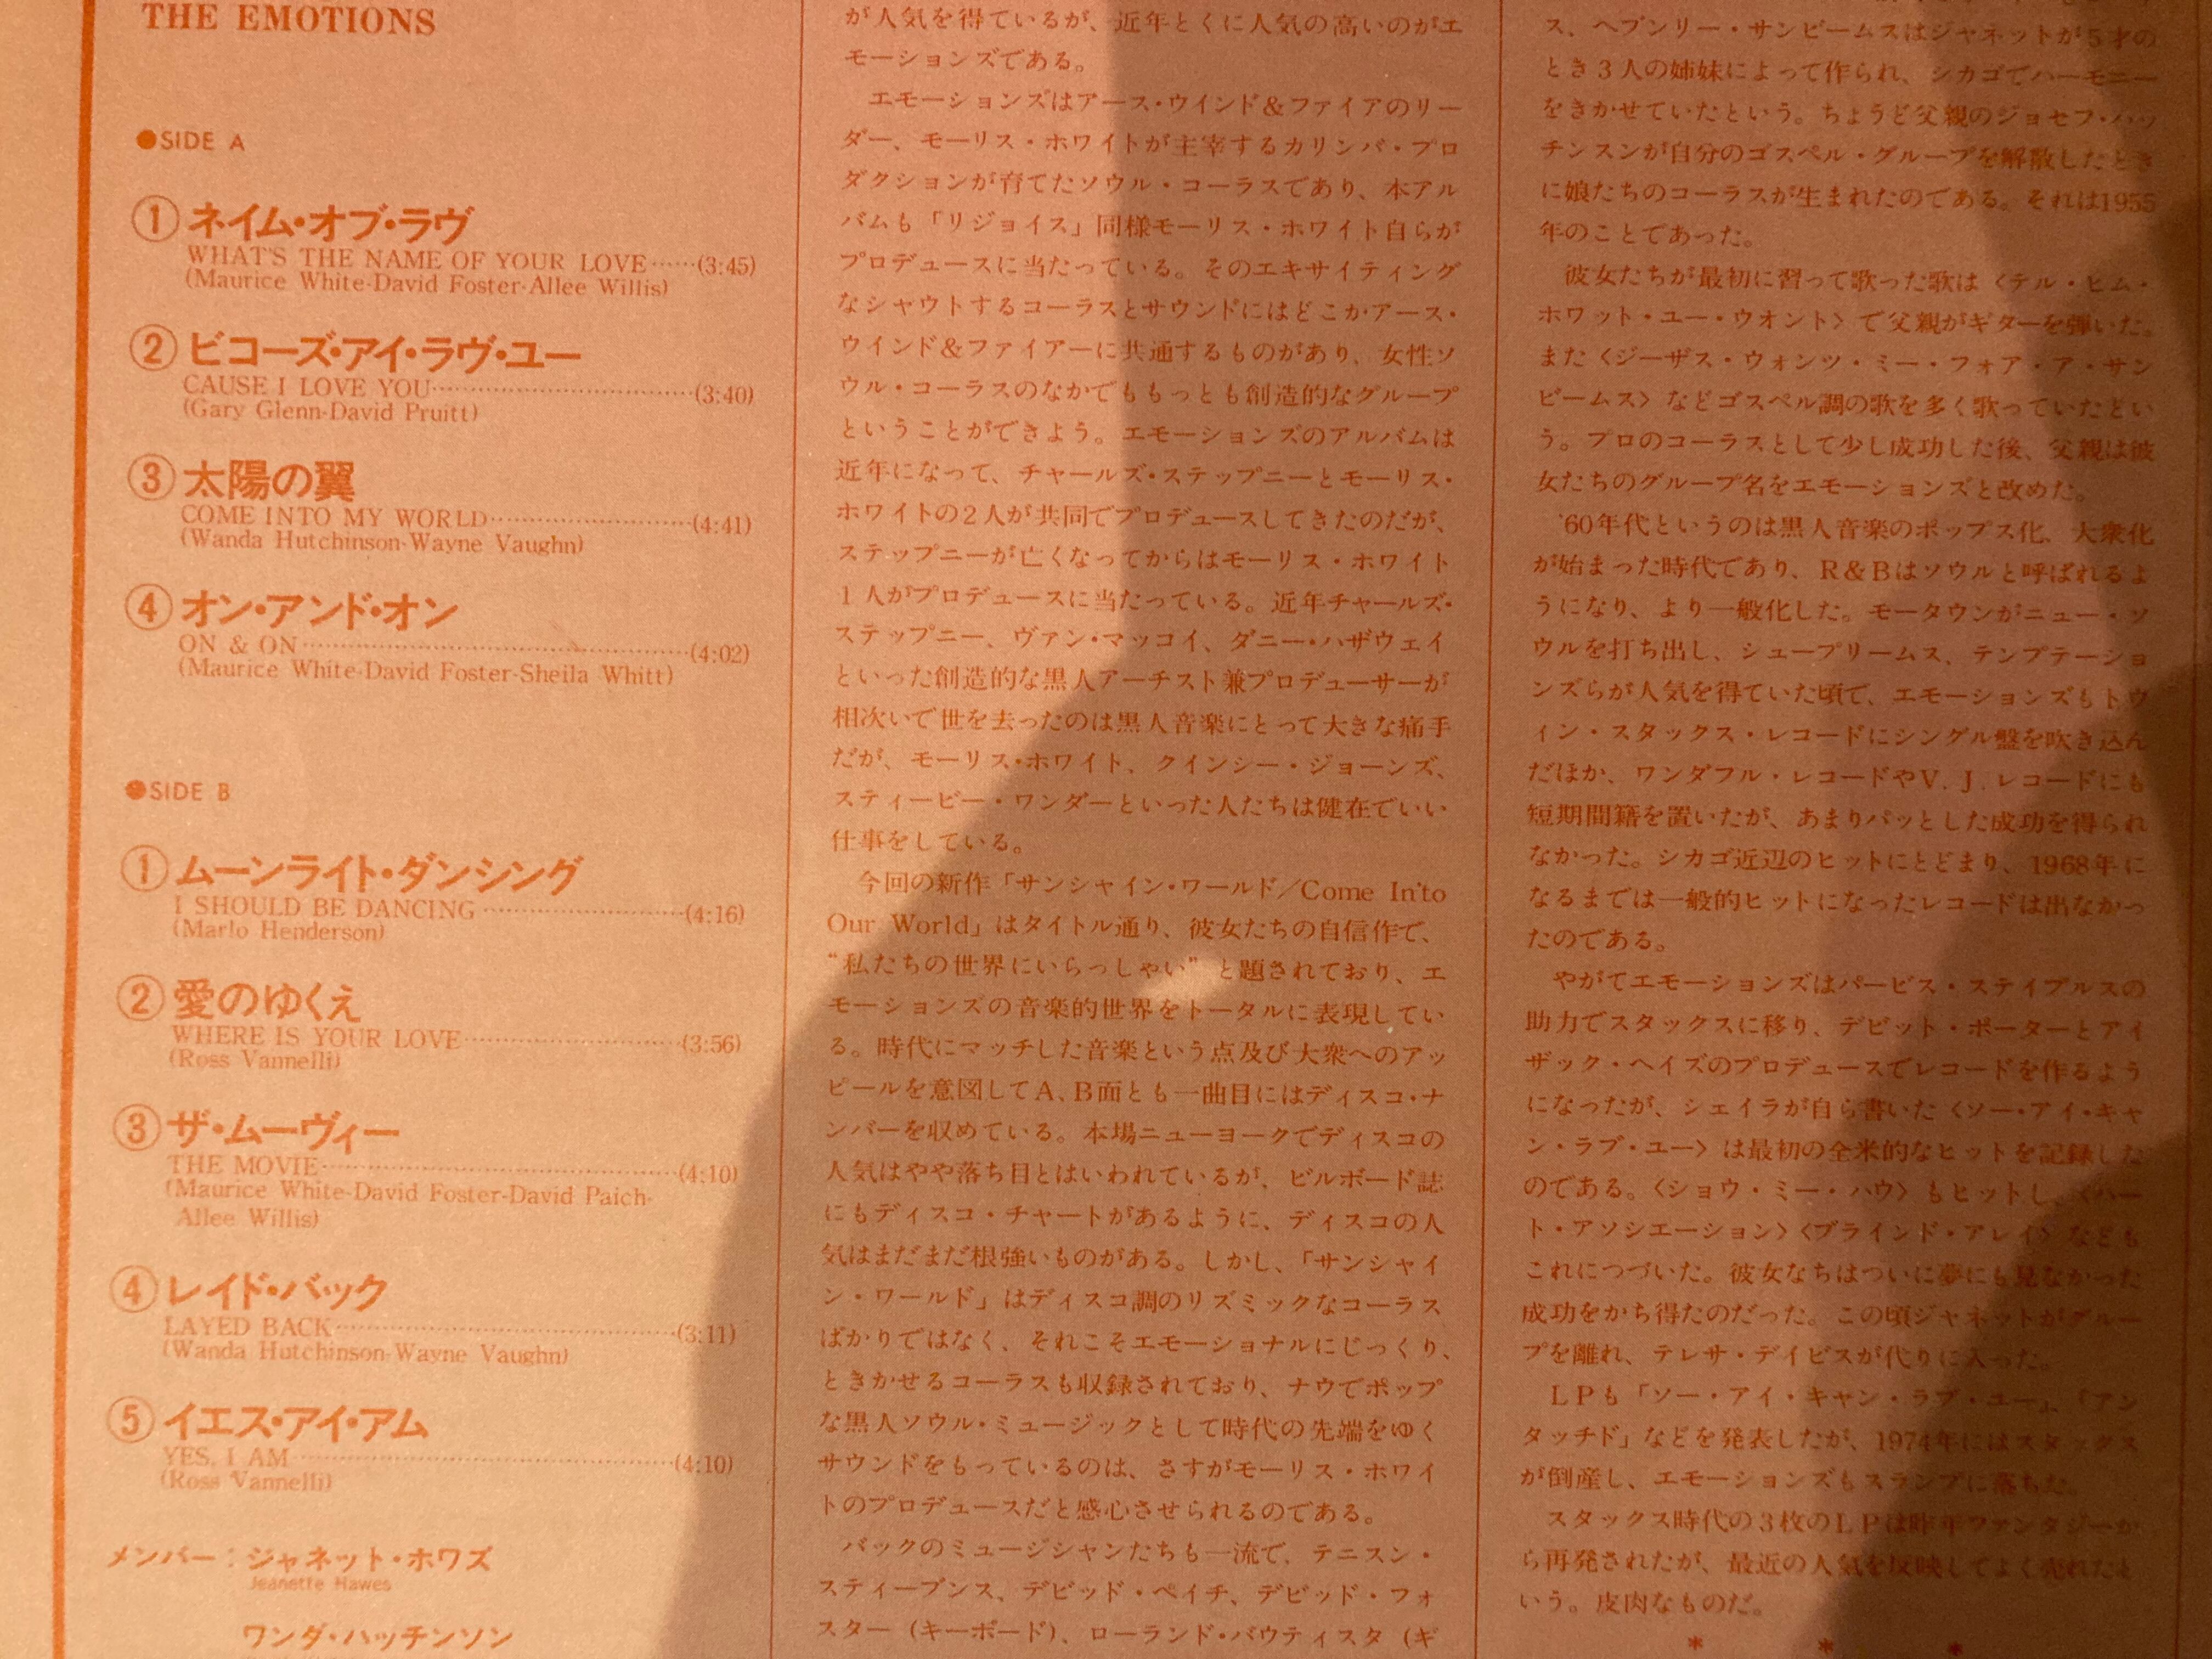 THE EMOTIONS
●SIDE A
①ネイム・オブ・ラヴ
WHAT'S THE NAME OF YOUR LOVE……(3:45)
(Maurice White-David Foster-Allee Willis)
②ビコーズ・アイ・ラヴ・ユー
CAUSE I LOVE YOU……(3:40)
(Gary Glenn-David Pruitt)
③太陽の翼
COME INTO MY WORLD……(4:41)
(Wanda Hutchinson-Wayne Vaughn)
④オン・アンド・オン
ON & ON……(4:02)
(Maurice White-David Foster-Sheila Whitt)
●SIDE B
①ムーンライト・ダンシング
I SHOULD BE DANCING……(4:16)
(Marlo Henderson)
②愛のゆくえ
WHERE IS YOUR LOVE……(3:56)
(Ross Vannelli)
③ザ・ムーヴィー
THE MOVIE……(4:10)
(Maurice White-David Foster-David Paich-
Allee Willis)
④レイド・バック
LAYED BACK……(3:11)
(Wanda Hutchinson-Wayne Vaughn)
⑤イエス・アイ・アム
YES, I AM……(4:10)
(Ross Vannelli)
メンバー：ジャネット・ホワズ
Jeanette Hawes
ワンダ・ハッチンソン
が人気を得ているが、近年とくに人気の高いのがエ
モーションズである。
エモーションズはアース・ウインド＆ファイアのリー
ダー、モーリス・ホワイトが主宰するカリンバ・プロ
ダクションが育てたソウル・コーラスであり、本アル
バムも「リジョイス」同様モーリス・ホワイト自らが
プロデュースに当たっている。そのエキサイティング
なシャウトするコーラスとサウンドにはどこかアース・
ウインド＆ファイアーに共通するものがあり、女性ソ
ウル・コーラスのなかでももっとも創造的なグループ
ということができよう。エモーションズのアルバムは
近年になって、チャールズ・ステップニーとモーリス・
ホワイトの2人が共同でプロデュースしてきたのだが、
ステップニーが亡くなってからはモーリス・ホワイト
1人がプロデュースに当たっている。近年チャールズ・
ステップニー、ヴァン・マッコイ、ダニー・ハザウェイ
といった創造的な黒人アーチスト兼プロデューサーが
相次いで世を去ったのは黒人音楽にとって大きな痛手
だが、モーリス・ホワイト、クインシー・ジョーンズ、
スティービー・ワンダーといった人たちは健在でいい
仕事をしている。
今回の新作「サンシャイン・ワールド／Come In'to
Our World」はタイトル通り、彼女たちの自信作で、
“私たちの世界にいらっしゃい”と題されており、エ
モーションズの音楽的世界をトータルに表現してい
る。時代にマッチした音楽という点及び大衆へのアッ
ピールを意図してA、B面とも一曲目にはディスコ・ナ
ンバーを収めている。本場ニューヨークでディスコの
人気はやや落ち目とはいわれているが、ビルボード誌
にもディスコ・チャートがあるように、ディスコの人
気はまだまだ根強いものがある。しかし、「サンシャイ
ン・ワールド」はディスコ調のリズミックなコーラス
ばかりではなく、それこそエモーショナルにじっくり、
ときかせるコーラスも収録されており、ナウでポップ
な黒人ソウル・ミュージックとして時代の先端をゆく
サウンドをもっているのは、さすがモーリス・ホワイ
トのプロデュースだと感心させられるのである。
バックのミュージシャンたちも一流で、テニスン・
スティーブンス、デビッド・ペイチ、デビッド・フォ
スター（キーボード）、ローランド・バウティスタ（ギ
ス、ヘブンリー・サンビームスはジャネットが5才の
とき3人の姉妹によって作られ、シカゴでハーモニー
をきかせていたという。ちょうど父親のジョセフ・ハッ
チンスンが自分のゴスペル・グループを解散したとき
に娘たちのコーラスが生まれたのである。それは1955
年のことであった。
彼女たちが最初に習って歌った歌は〈テル・ヒム・
ホワット・ユー・ウオント〉で父親がギターを弾いた。
また〈ジーザス・ウォンツ・ミー・フォア・ア・サン
ビームス〉などゴスペル調の歌を多く歌っていたとい
う。プロのコーラスとして少し成功した後、父親は彼
女たちのグループ名をエモーションズと改めた。
'60年代というのは黒人音楽のポップス化、大衆化
が始まった時代であり、R＆Bはソウルと呼ばれるよ
うになり、より一般化した。モータウンがニュー・ソ
ウルを打ち出し、シュープリームス、テンプテーショ
ンズらが人気を得ていた頃で、エモーションズもトウ
ィン・スタックス・レコードにシングル盤を吹き込ん
だほか、ワンダフル・レコードやV．J．レコードにも
短期間籍を置いたが、あまりパッとした成功を得られ
なかった。シカゴ近辺のヒットにとどまり、1968年に
なるまでは一般的ヒットになったレコードは出なかっ
たのである。
やがてエモーションズはパービス・ステイプルスの
助力でスタックスに移り、デビット・ポーターとアイ
ザック・ヘイズのプロデュースでレコードを作るよう
になったが、シェイラが自ら書いた〈ソー・アイ・キャ
ン・ラブ・ユー〉は最初の全米的なヒットを記録した
のである。〈ショウ・ミー・ハウ〉もヒットし、〈ハー
ト・アソシエーション〉〈ブラインド・アレイ〉なども
これにつづいた。彼女なちはついに夢にも見なかった
成功をかち得たのだった。この頃ジャネットがグルー
プを離れ、テレサ・デイビスが代りに入った。
LPも「ソー・アイ・キャン・ラブ・ユー」、「アン
タッチド」などを発表したが、1974年にはスタックス
が倒産し、エモーションズもスランプに落ちた。
スタックス時代の3枚のLPは昨年ファンタジーか
ら再発されたが、最近の人気を反映してよく売れたと
いう。皮肉なものだ。
＊ ＊ ＊